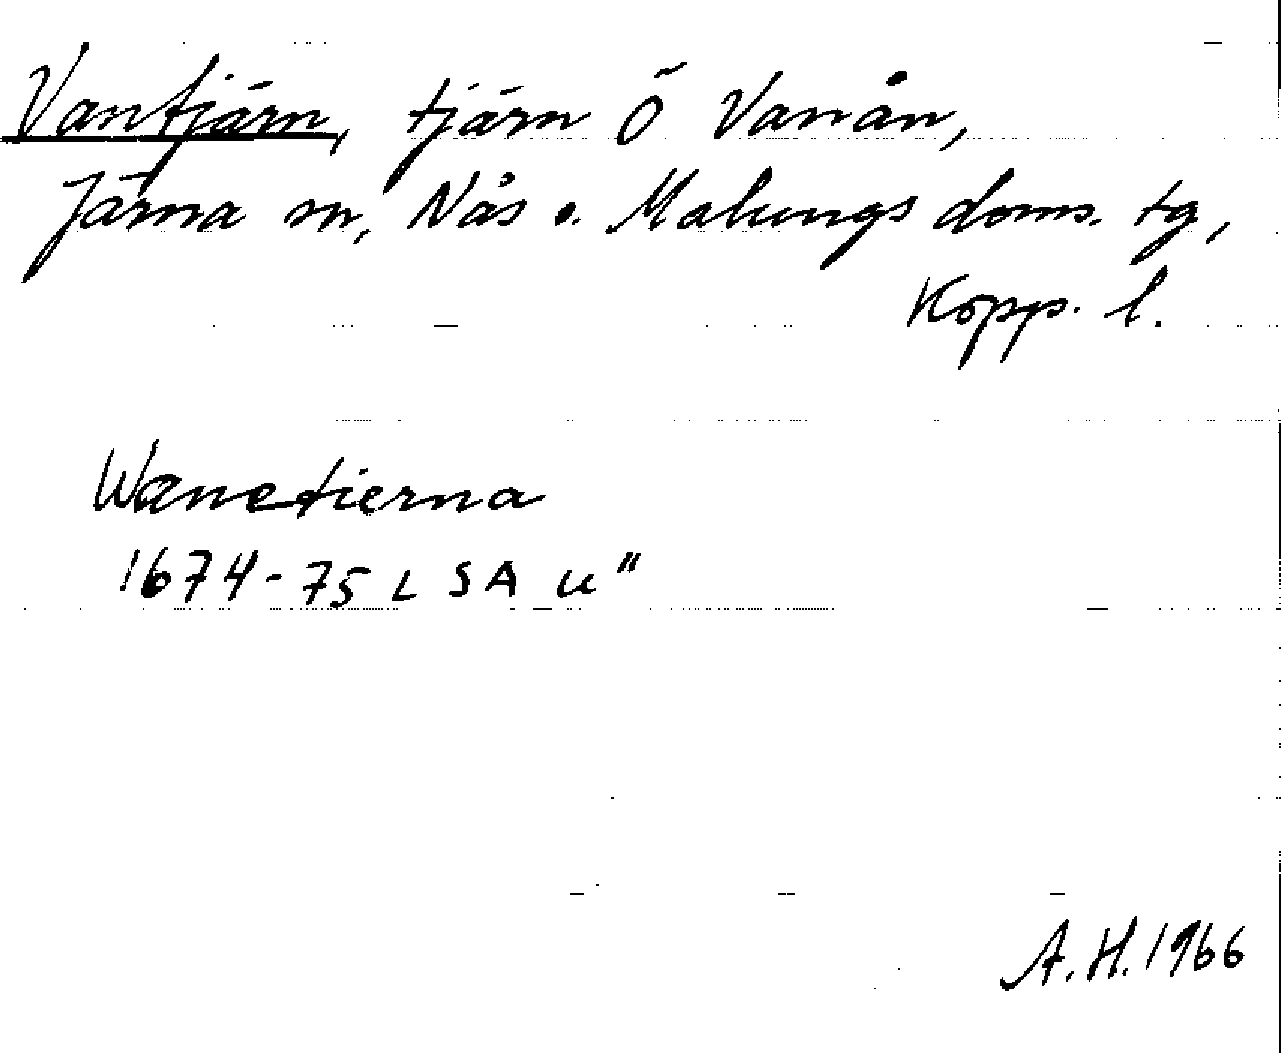 Vantjärn, tjärn Ö Vanån,
Järna sn, Nås o. Malungs doms. tg,
Kopp. l.
Wanetierna
1674-75 LSA u"
A.H. 1966